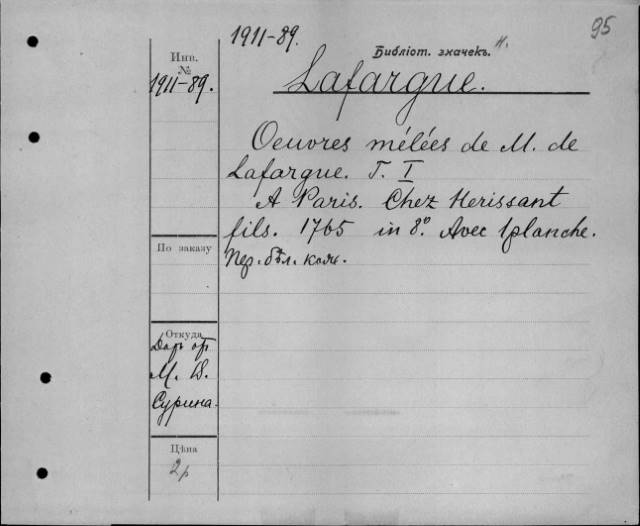 95
1911-89.
Библіот. значекъ. II.
Инв.
№
1911-89.
Lafargue.
Oeuvres mélées de M. de
Lafargue. T. I
A Paris. Chez Herissant
fils. 1765 in 8º. Avec 1 planche.
Пер. бѣл. кож.
По заказу
Откуда
Даръ
М. В.
Сурина.
Цѣна
2 р